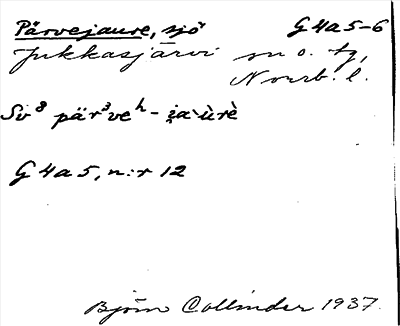 Pärvejaure, sjö G4a5-6
Jukkasjärvi sn o. tg,
Norrb. l.
Sv⁸ pär³veʰ-i̯a·ùrè
G4a5, n:r 12
Björn Collinder 1937.